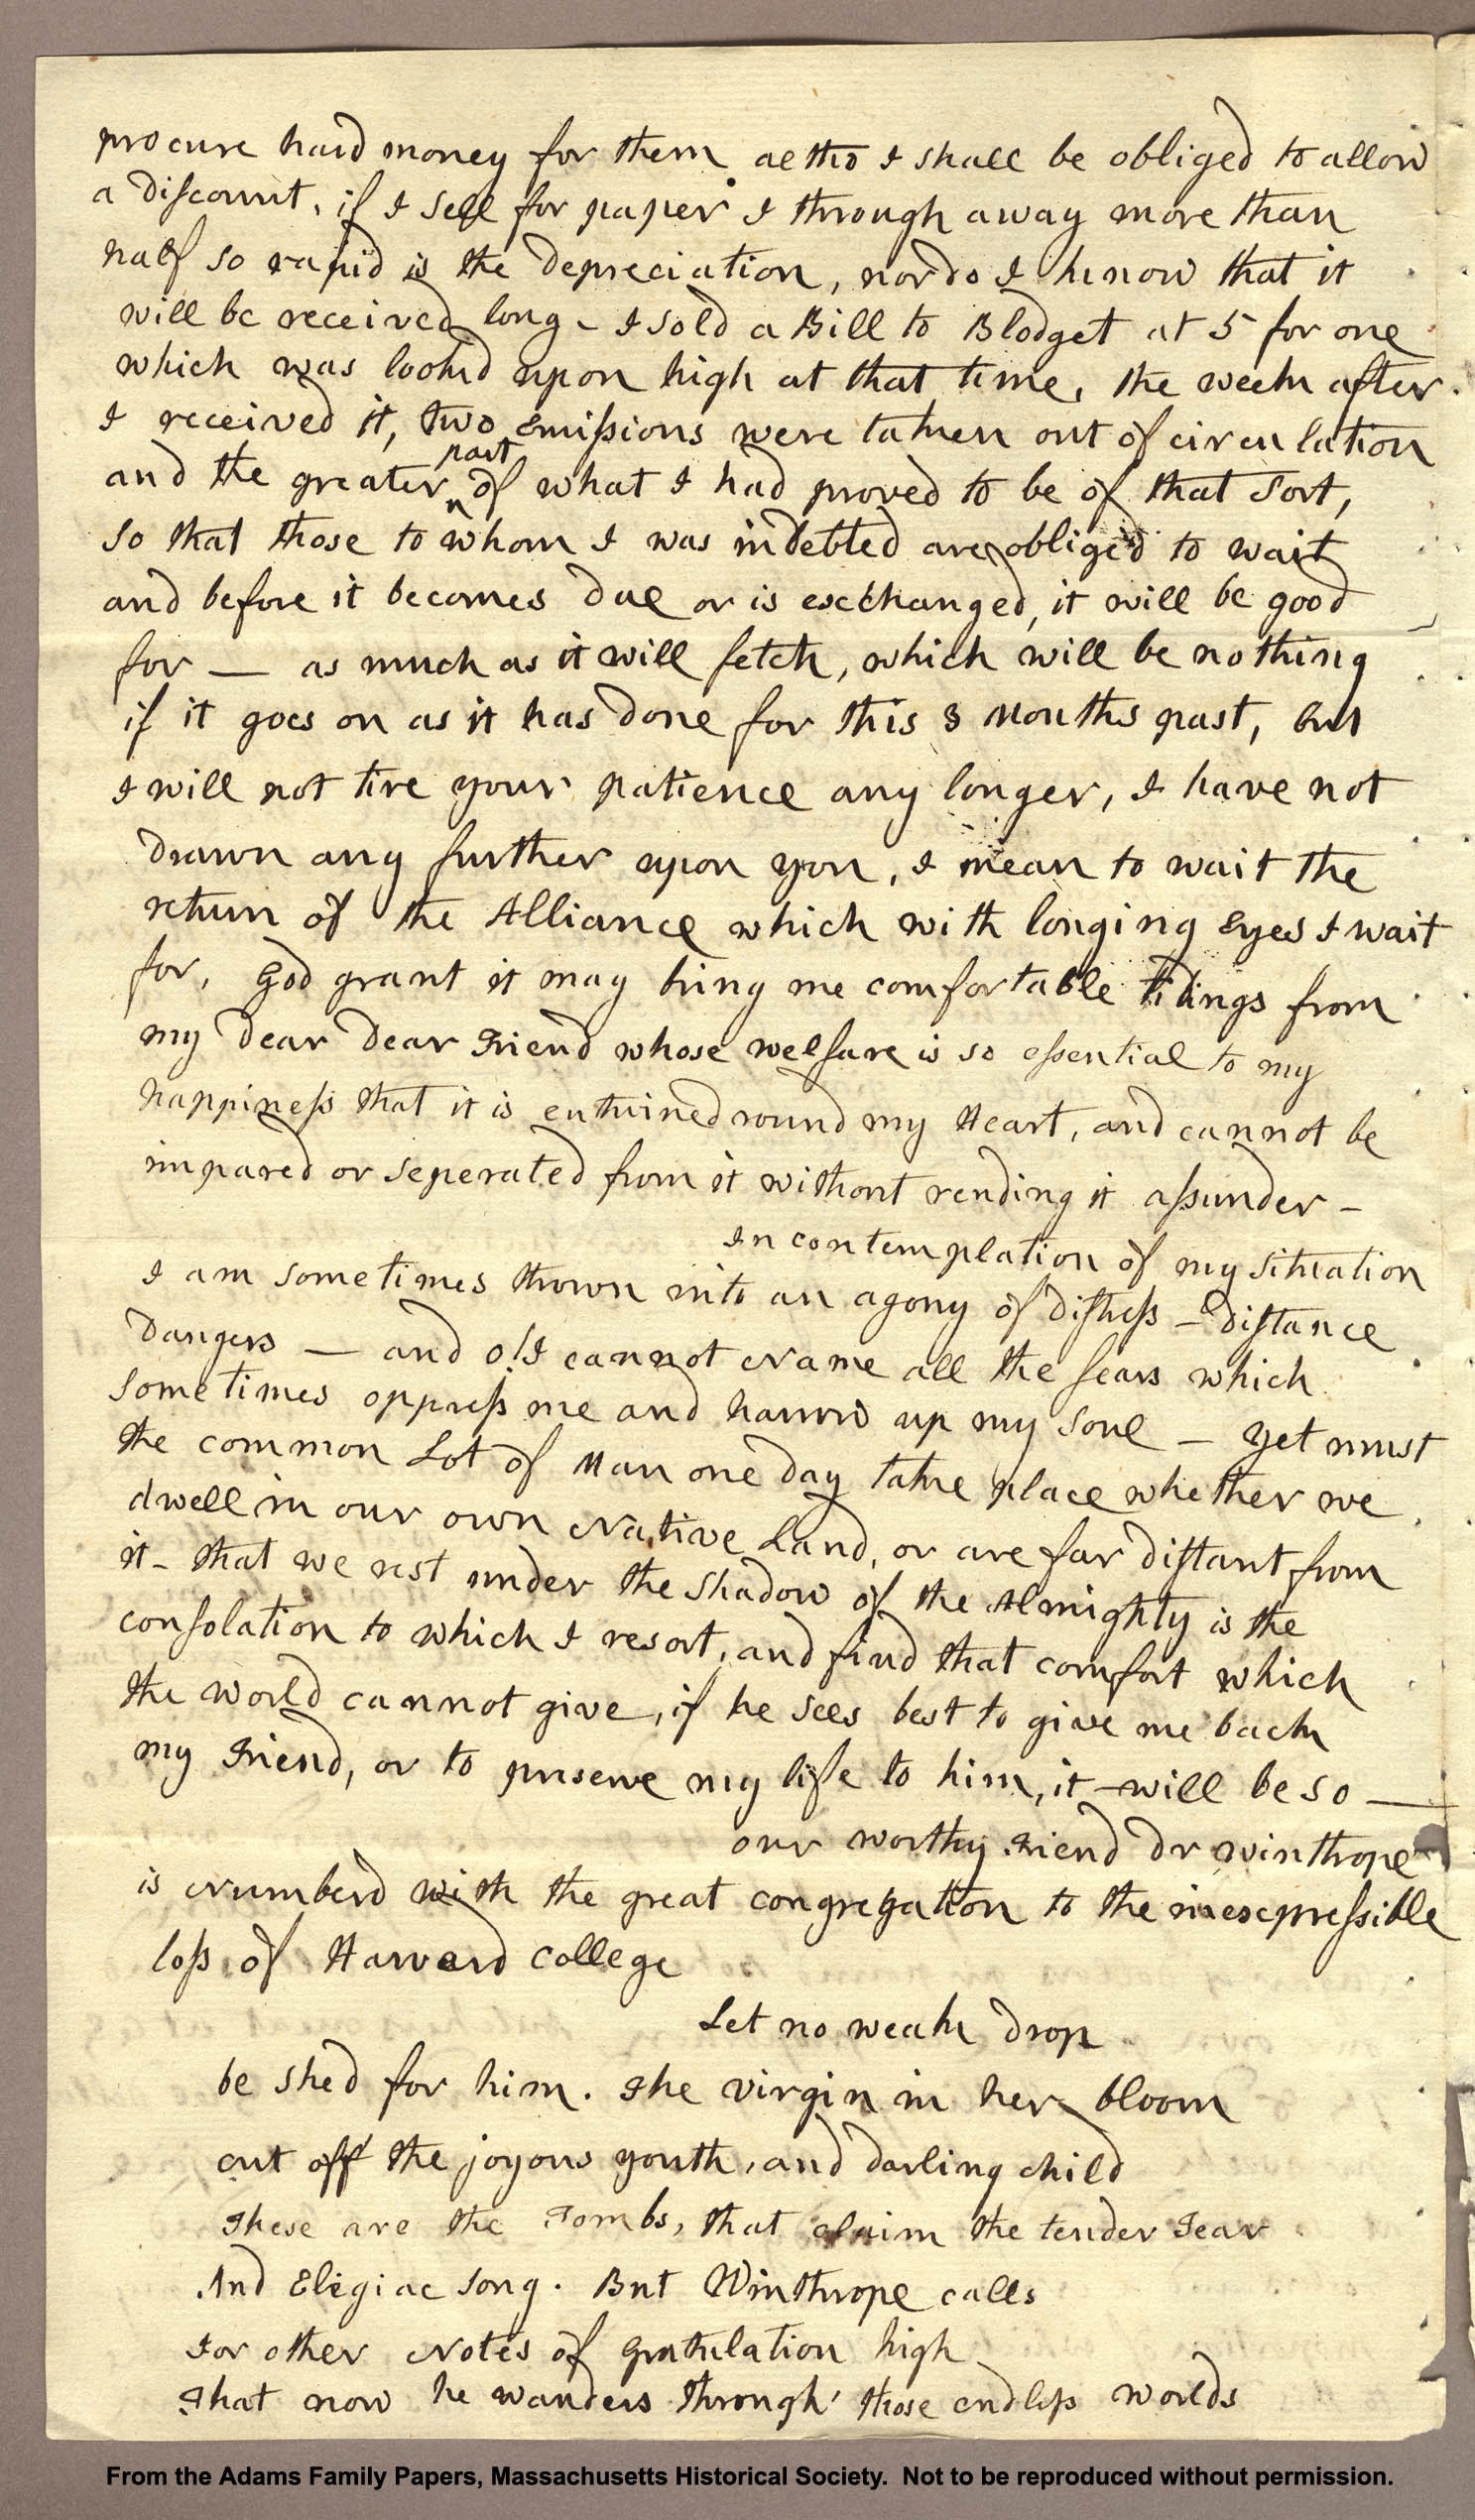 procure hard money for them. altho I shall be obliged to allow
a discount, if I sell for paper I through away more than
half so rapid is the depreciation, nor do I know that it
will be received long - I sold a Bill to Blodget at 5 for one
which was lookd upon high at that time, the week after
I received it, two Emissions were taken out of circulation
and the greater part of what I had proved to be of that sort,
so that those to whom I was indebted are obliged to wait
and before it becomes due or is exchanged, it will be good
for — as much as it will fetch, which will be nothing
if it goes on as it has done for this 3 Months past, but
I will not tire your patience any longer, I have not
drawn any further upon you, I mean to wait the
return of the Alliance which with longing Eyes I wait
for, God grant it may bring me comfortable tidings from
my dear dear Friend whose welfare is so essential to my
happiness that it is entwined round my Heart, and cannot be
impared or seperated from it without rending it assunder -
In contemplation of my situation
I am sometimes thrown into an agony of distress - distance
dangers — and o! I cannot Name all the fears which
sometimes oppress me and harrow up my soul - yet must
the common Lot of Man one day take place whether we
dwell in our own Native Land, or are far distant from
it - that we rest under the shadow of the Almighty is the
consolation to which I resort, and find that comfort which
the world cannot give, if he sees best to give me back
my Friend, or to preserve my life to him, it will be so —
our worthy Friend Dr Winthrope
is Numberd with the great congregation to the inexpressible
loss of Harvard College
Let no weak drop
be shed for him. The virgin in her bloom
cut off the joyous youth, and darling child
These are the Tombs, that claim the tender Tear
And Elegiac song. But Winthrope calls
For other Notes of gratulation high
That now he wanders through' those endless worlds
From the Adams Family Papers, Massachusetts Historical Society. Not to be reproduced without permission.